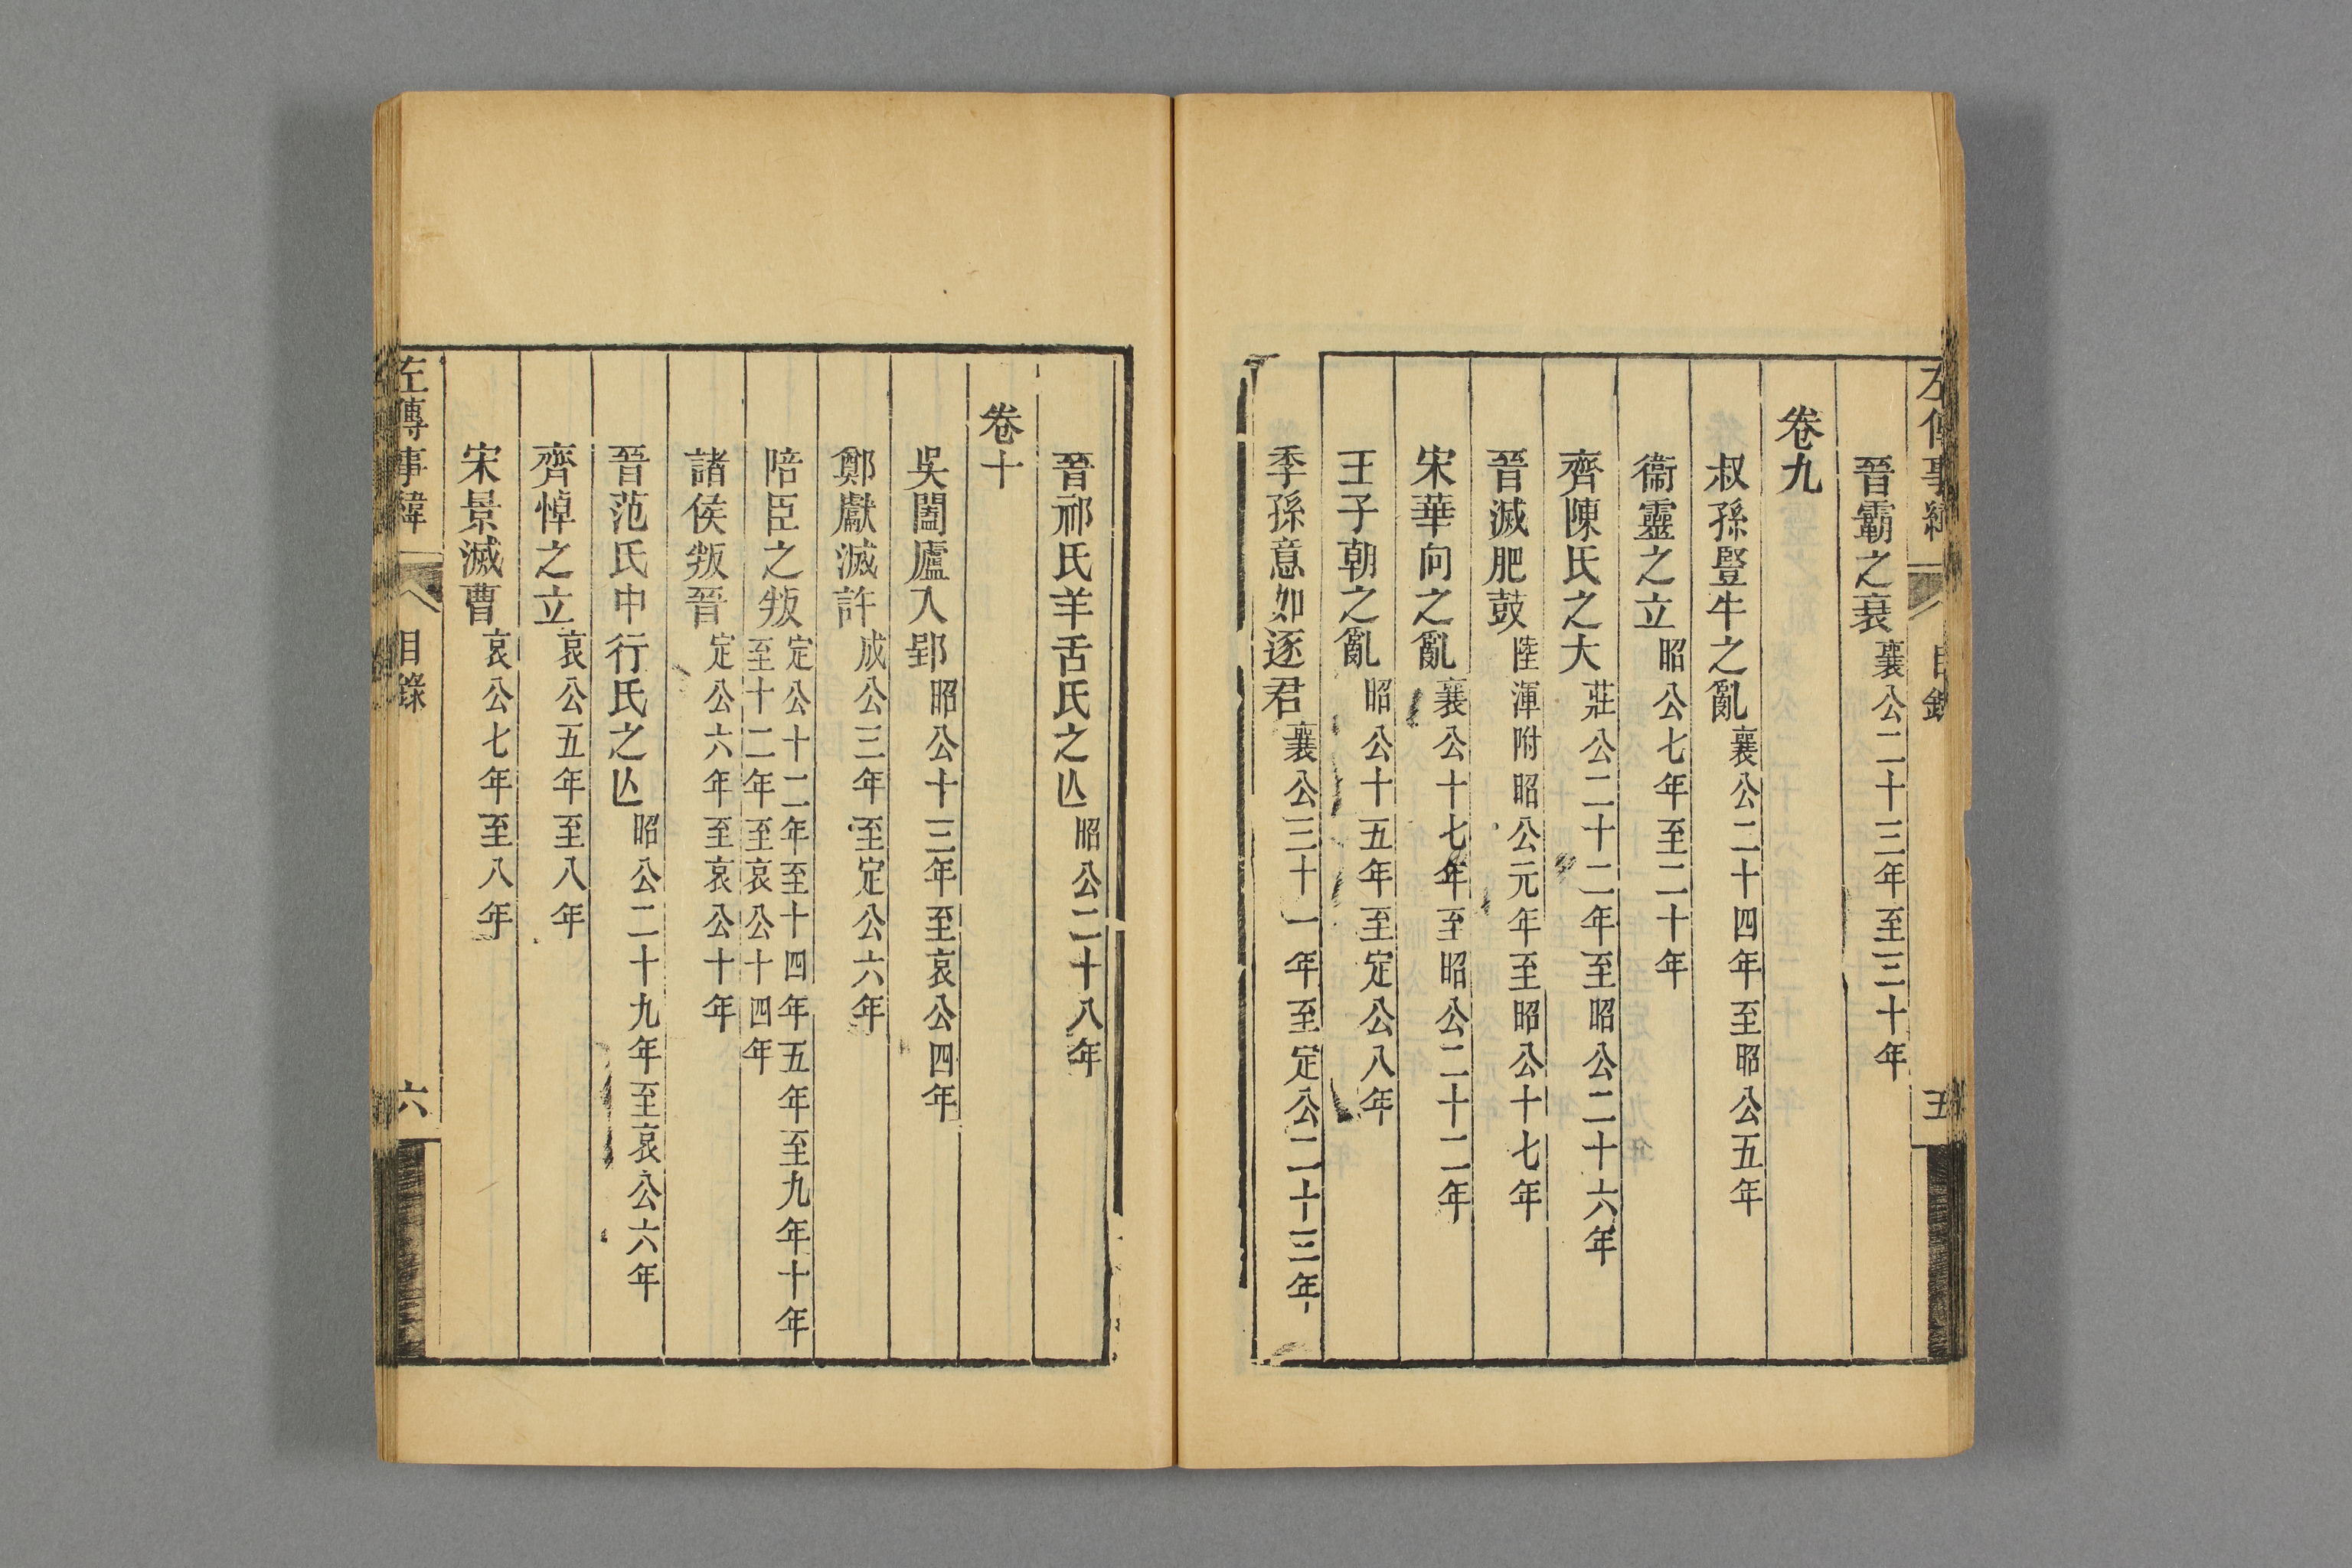 左傳事緯 目錄 五
晉霸之衰 襄公二十三年至三十年
卷九
叔孫豎牛之亂 襄公二十四年至昭公五年
衞靈之立 昭公七年至二十年
齊陳氏之大 莊公二十二年至昭公二十六年
晉滅肥鼓 陸渾附昭公元年至昭公十七年
宋華向之亂 襄公十七年至昭公二十二年
王子朝之亂 昭公十五年至定公八年
季孫意如逐君 襄公三十一年至定公二十三年
晉祁氏羊舌氏之亾 昭公二十八年
卷十
吳闔廬入郢 昭公十三年至哀公四年
鄭獻滅許 成公三年至定公六年
陪臣之叛 定公十二年至十四年五年至九年十年
至十二年至哀公十四年
諸侯叛晉 定公六年至哀公十年
晉范氏中行氏之亾 昭公二十九年至哀公六年
齊悼之立 哀公五年至八年
宋景滅曹 哀公七年至八年
左傳事緯 目錄 六